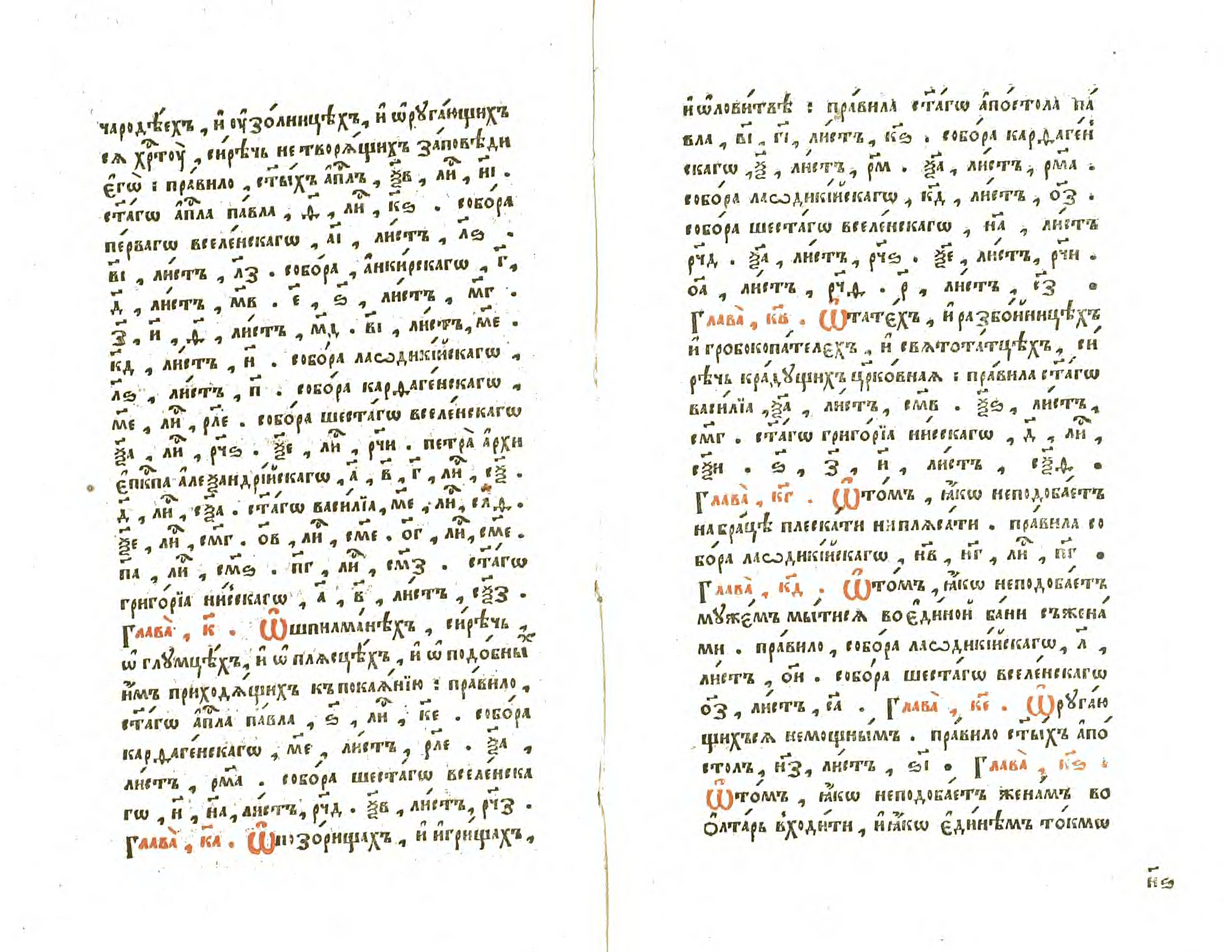 чародѣехъ , и҆ ᲂу҆зо́лницѣхъ, и҆ ѡ҆рꙋга́ющихъ
сѧ хрⷭ҇тоу̀ , си́рѣчь не творѧ́щихъ за́повѣди
є҆гѡ̀ : пра́вило , ст҃ы́хъ а҆пⷭ҇лъ , ѯ҃в , лиⷭ҇ , н҃і .
ст҃а́гѡ а҆пⷭ҇ла па́вла , ѳ҃ , лиⷭ҇ , к҃ѕ . собо́ра
пе́рвагѡ вселе́нскагѡ , а҃і , ли́стъ , л҃ѕ .
в҃і , ли́стъ , л҃з . собо́ра , а҆нки́рскагѡ , г҃ ,
д҃ , ли́стъ , м҃в . є҃ , ѕ҃ , ли́стъ , м҃г .
з҃ , и҃ , ѳ҃ , ли́стъ , м҃д . в҃і , ли́стъ , м҃е .
к҃д , ли́стъ , н҃ . собо́ра лаѡдикі́йскагѡ ,
л҃ѕ , ли́стъ , п҃ . собо́ра карѳаге́нскагѡ ,
м҃е , лиⷭ҇ , рл҃е . собо́ра шеста́гѡ вселе́нскагѡ
ѯ҃а , лиⷭ҇ , рч҃ѕ . ѯ҃е , лиⷭ҇ , рч҃и . петра̀ а҆рхи
є҆пкⷭ҇па алеѯандрі́йскагѡ , а҃ , в҃ , г҃ , лиⷭ҇ , сѯ҃ .
д҃ , лиⷭ҇ , сѯ҃а . ст҃а́гѡ васи́лїа , м҃е , лиⷭ҇ , сл҃ѳ .
ѯ҃е , лиⷭ҇ , см҃г . о҃в , лиⷭ҇ , см҃е . о҃г , лиⷭ҇ , см҃е .
п҃а , лиⷭ҇ , см҃ѕ . п҃г , лиⷭ҇ , см҃з . ст҃а́гѡ
григо́рїа ни́сскагѡ , а҃ , в҃ , ли́стъ , сѯ҃з .
Глава̀ , к҃ . Ѿшпилма́нѣхъ , си́рѣчь ,
ѡ҆ глꙋмцѣ́хъ, и҆ ѡ҆ плѧсцѣ́хъ , и҆ ѡ҆ подо́бныⷯ
и҆̀мъ приходѧ́щихъ къ покаѧ́нїю : пра́вило ,
ст҃а́гѡ а҆пⷭ҇ла па́вла , ѕ҃ , лиⷭ҇ , к҃е . собо́ра
карѳаге́нскагѡ , м҃е , ли́стъ , рл҃е . ѯ҃а ,
ли́стъ , рм҃а . собо́ра шеста́гѡ вселе́нска
гѡ , н҃ , н҃а , ли́стъ , рч҃д . ѯ҃в , ли́стъ , рч҃з .
Глава̀ , к҃а . Ѿпозо́рищахъ , и҆ и҆гри́щахъ ,
и҆ ѡ҆ лови́твѣ : пра́вила ст҃а́гѡ а҆по́стола па́
вла , в҃і , г҃і , ли́стъ , к҃ѕ . собо́ра карѳаге́н
скагѡ , ѯ҃ , ли́стъ , рм҃ . ѯ҃а , ли́стъ , рм҃а .
собо́ра лаѡдикі́йскагѡ , к҃д , ли́стъ , о҃з .
собо́ра шеста́гѡ вселе́нскагѡ , н҃а , ли́стъ
рч҃д . ѯ҃а , ли́стъ , рч҃ѕ . ѯ҃е , ли́стъ , рч҃и .
о҃а , ли́стъ , рч҃ѳ . р҃ , ли́стъ , с҃з .
Глава̀ , к҃в . Ѿтате́хъ , и҆ разбо́йницѣхъ
и҆ гробокопа́телехъ , и҆ свѧтота́тцѣхъ , си́
рѣчь кра́дꙋщихъ цр҃ко́внаѧ : пра́вила ст҃а́гѡ
васи́лїа , ѯ҃а , ли́стъ , см҃в . ѯ҃ѕ , ли́стъ ,
см҃г . ст҃а́гѡ григо́рїа ни́сскагѡ , д҃ , лиⷭ҇ ,
сѯ҃и . ѕ҃ , з҃ , и҃ , ли́стъ , сѯ҃ѳ .
Глава̀ , к҃г . Ѿто́мъ , ꙗ҆́кѡ неподоба́етъ
на бра́цѣ плеска́ти ни плѧса́ти . пра́вила со
бо́ра лаѡдикі́йскагѡ , н҃в , н҃г , лиⷭ҇ , п҃г .
Глава̀ , к҃д . Ѿто́мъ , ꙗ҆́кѡ неподоба́етъ
мꙋже́мъ мы́тисѧ во є҆ди́ной ба́ни съ жена́
ми . пра́вило , собо́ра лаѡдикі́йскагѡ , л҃ ,
ли́стъ , о҃и . собо́ра шеста́гѡ вселе́нскагѡ
о҃з , ли́стъ , с҃а . Глава̀ , к҃е . Ѿрꙋга́ю
щихъсѧ немощны́мъ . пра́вило ст҃ы́хъ а҆по́
столъ , н҃з , ли́стъ , ѕ҃і . Глава̀ , к҃ѕ .
Ѿто́мъ , ꙗ҆́кѡ неподоба́етъ жена́мъ во
ѻ҆лта́рь входи́ти , и҆ ꙗ҆́кѡ є҆ди́нѣмъ то́кмѡ
н҃ѕ